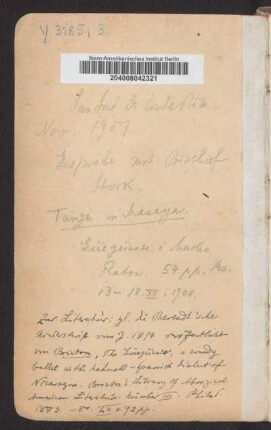 Y 3185, 3
Ibero-Amerikanisches Institut Berlin
204008042321
San José de Costa Rica
Nov. 1907
Gespräche mit Bischof
Stork.
Tänze in Masaya.
Güegüense i Macho
Raton. 54 pp.
13 - 18. XII. 1908.
Zur Literatur: gl. die Berendt'sche
Niederschrift vom J. 1874 veröffentlicht
von Brinton, The Güegüence, a comedy
ballet with Nahuatl-Spanish dialect of
Nicaragua. Brinton's Library of Aboriginal
American Literature. Number III. Philad.
1883. 8°. 92 pp.